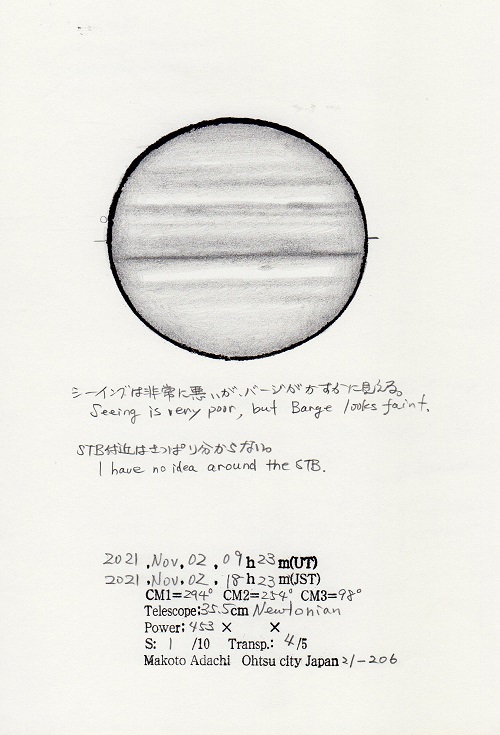 シーイングは非常に悪いが、バージがかすかに見える。
Seeing is very poor, but Barge looks faint.
STB付近はさっぱり分からない。
I have no idea around the STB.
2021, Nov, 02, 09h23m(UT)
2021, Nov, 02, 18h23m(JST)
CM1=294° CM2=254° CM3=98°
Telescope:35.5cm Newtonian
Power:453× ×
S: 1 /10 Transp.: 4/5
Makoto Adachi Ohtsu city Japan 21-206